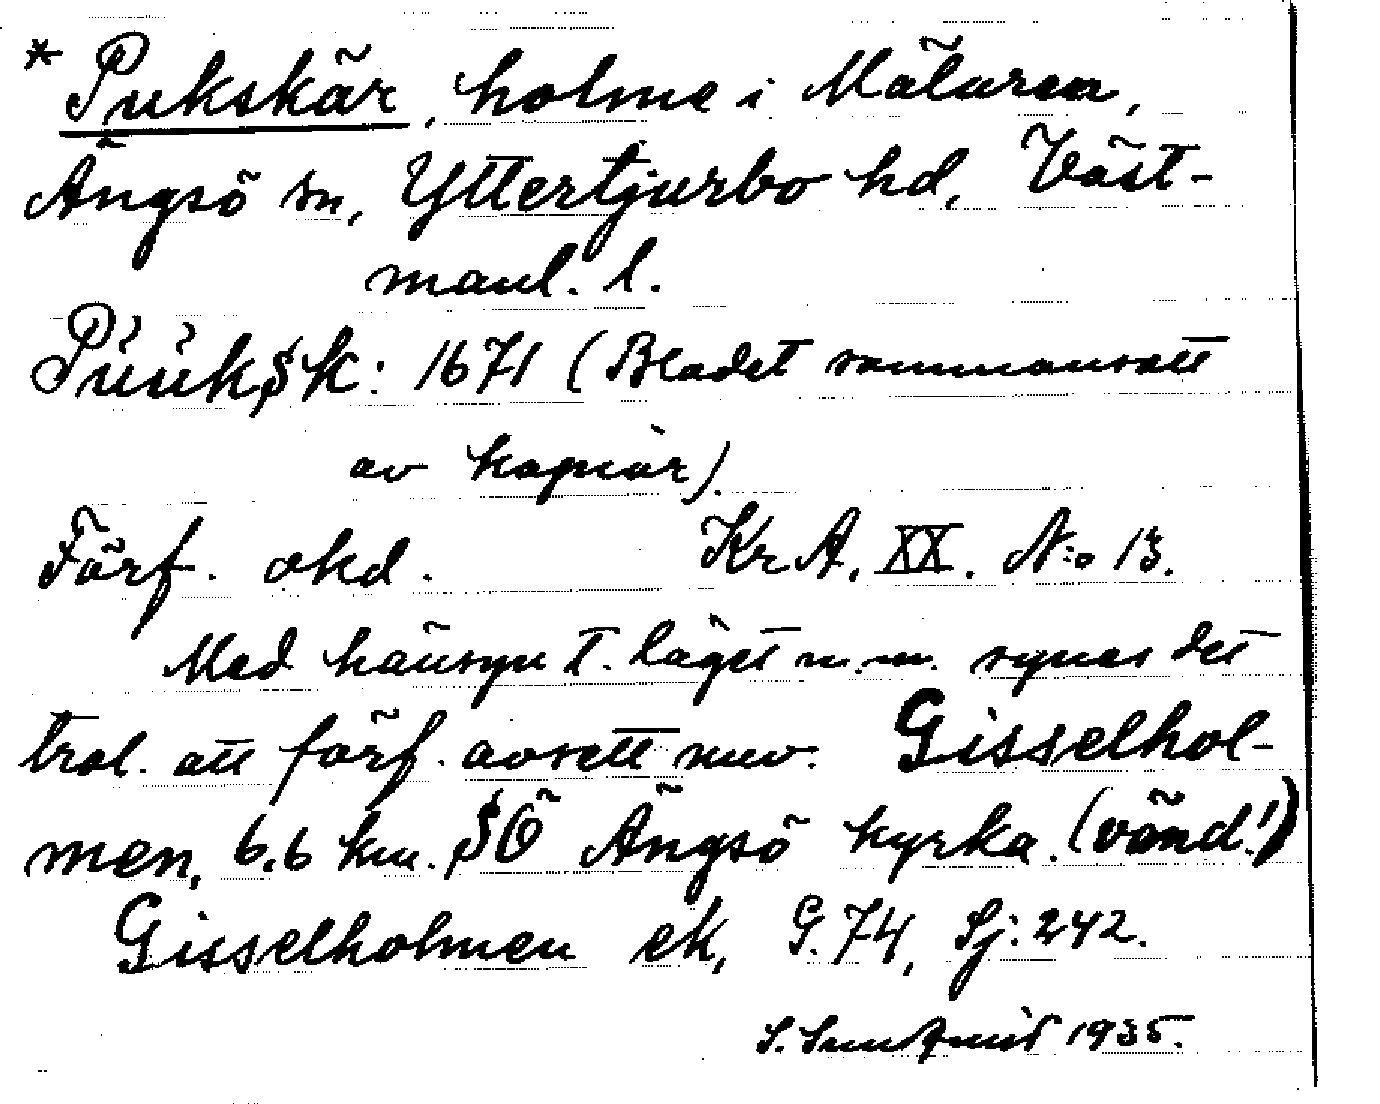 * Pukskär, holme i Mälaren,
Ängsö sn, Yttertjurbo hd, Väst-
manl. l.
Püüksk: 1671 (Bladet sammansatt
av kopior).
Förf. okd. KrA. XX. N:o 13.
Med hänsyn t. läget m.m. synes det
trol. att förf. avsett nuv. Gisselhol-
men, 6,6 km. SÖ Ängsö kyrka. (vänd!)
Gisselholmen ek, G. 74, Sj: 242.
1935.